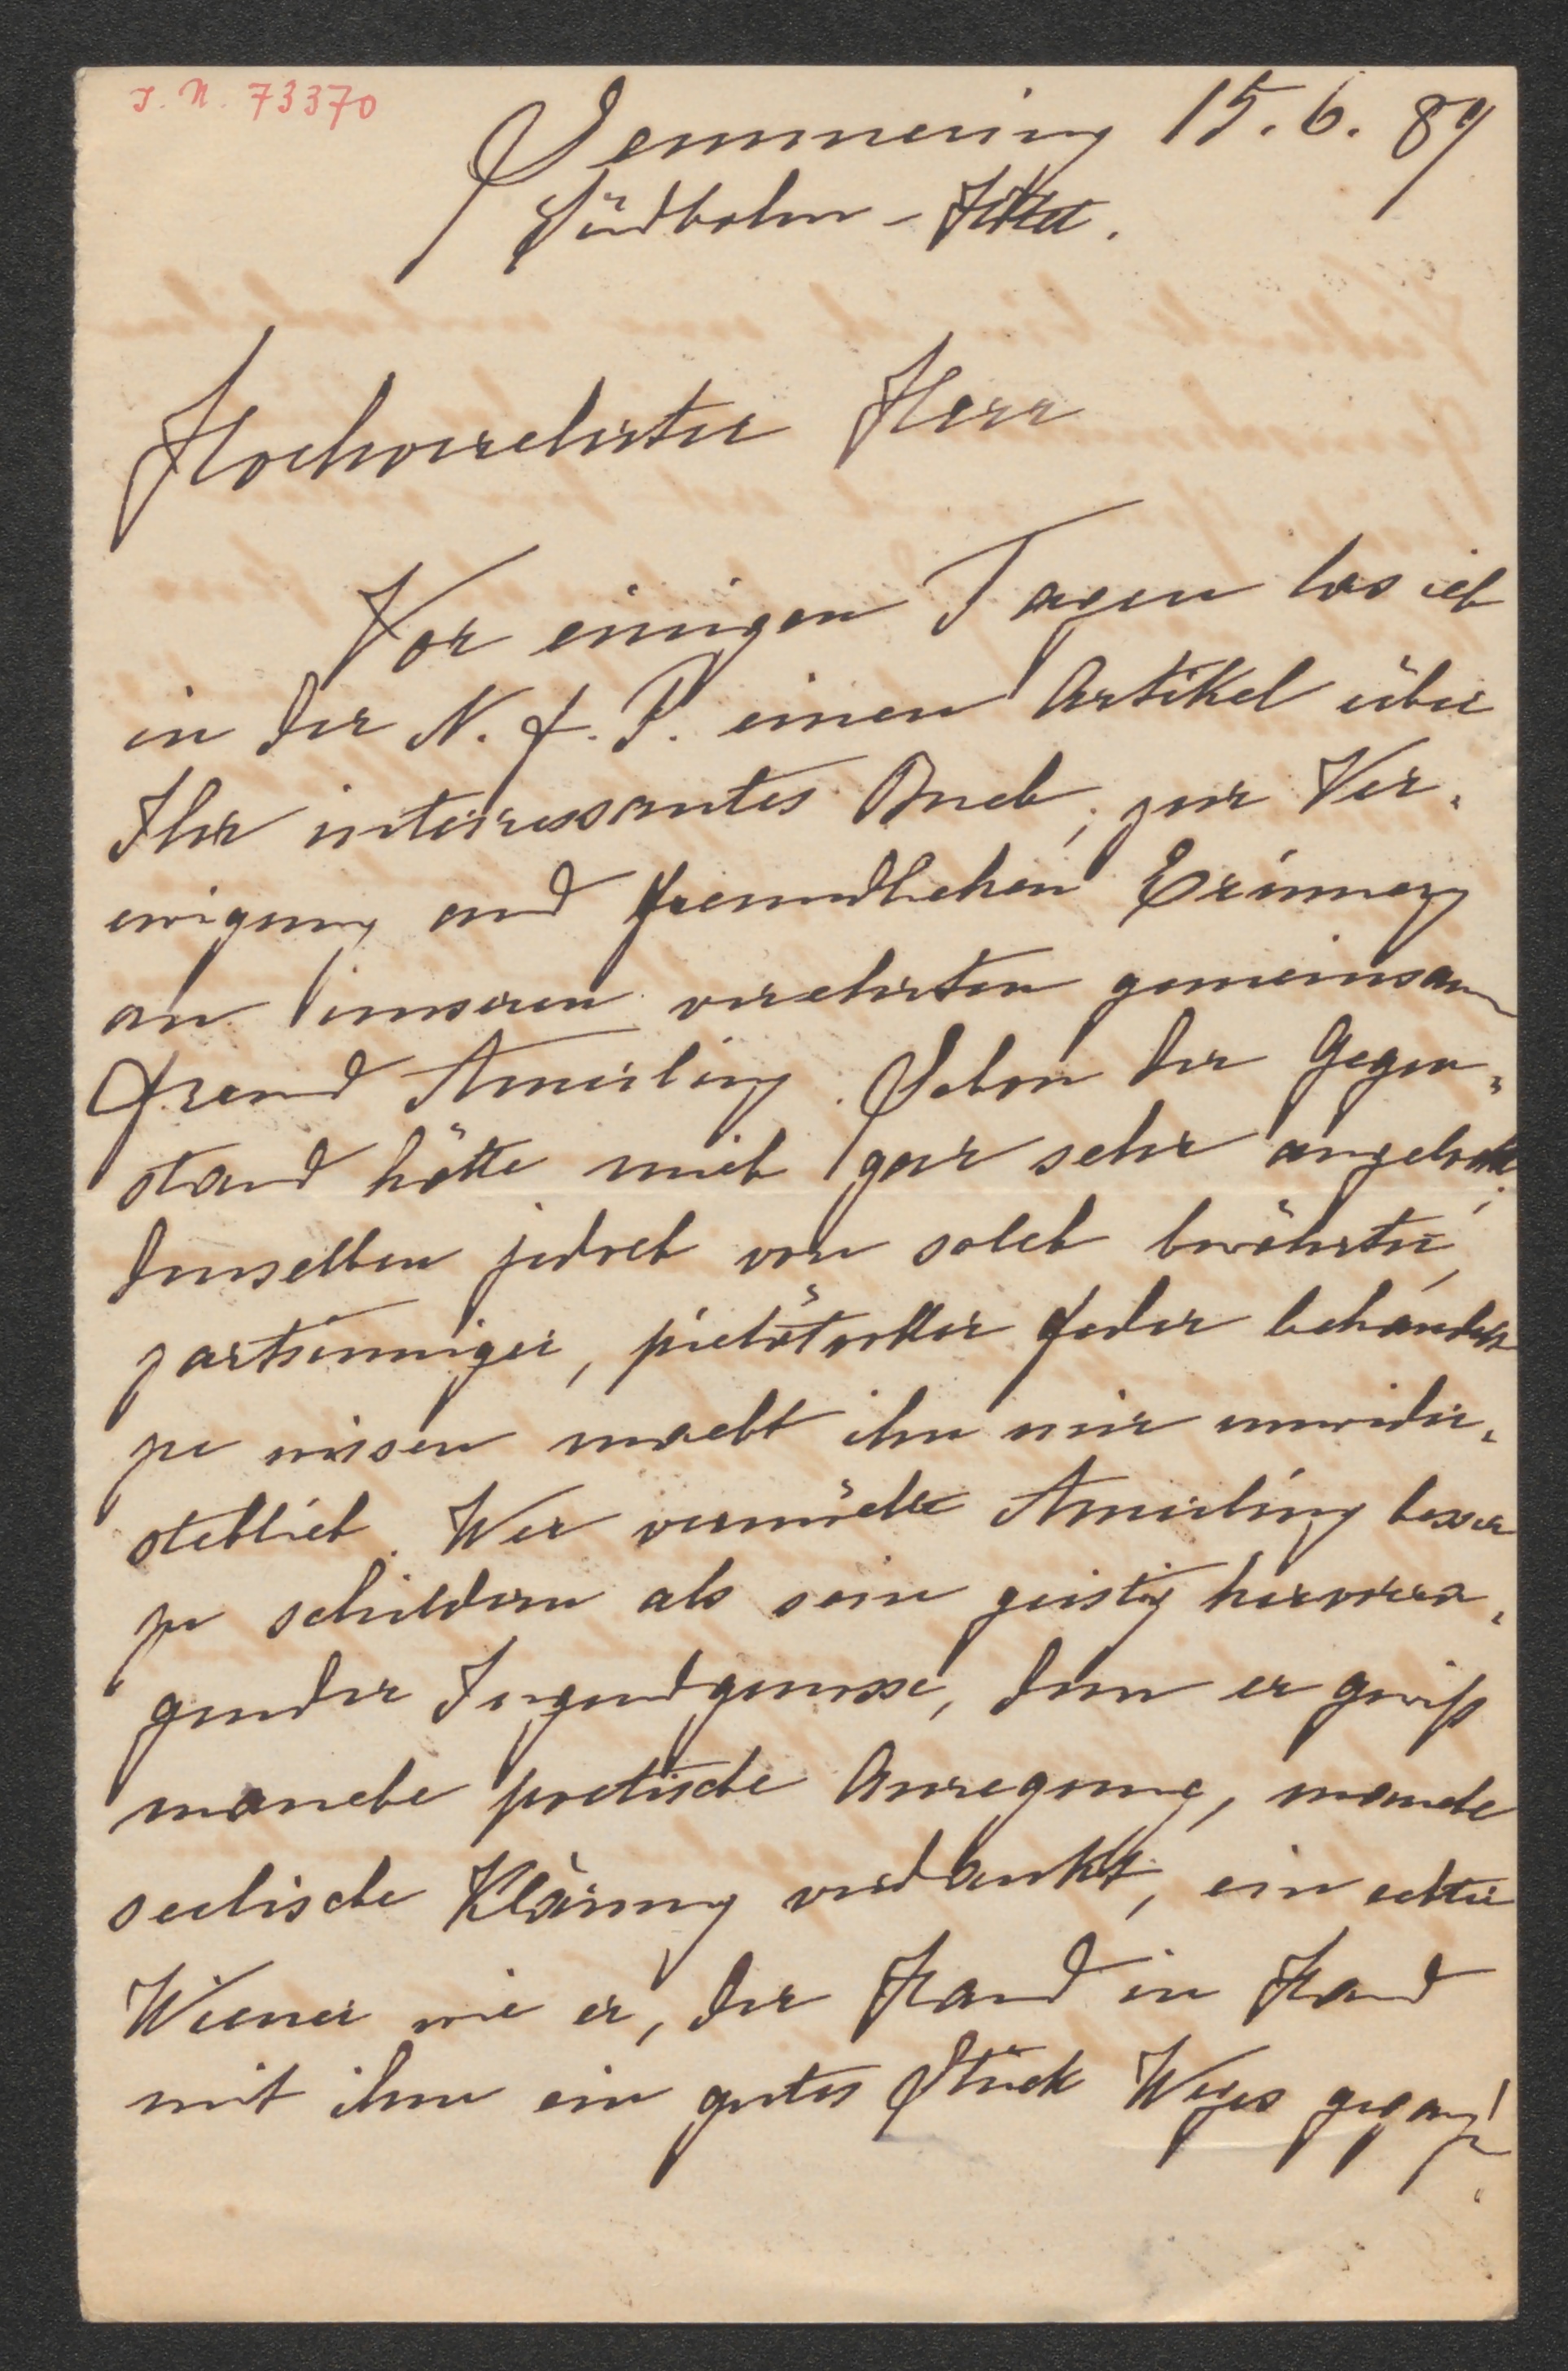 I. N. 73370
Semmering 15. 6. 89
Südbahn-Hôtel.
Hochverehrter Herr
Vor einigen Tagen las ich
in der N. f. P. einen Artikel über
Ihr interessantes Buch, zur Ver-
ewigung und freundlichen Erinnerg
an unseren verehrten gemeinsam
Freund Amerling. Schon der Gegen-
stand hätte mich gar sehr angelockt;
denselben jedoch von solch bewährter,
zartsinniger, pietätvoller Feder behandelt
zu wissen macht ihn mir unwider-
stehlich. Wer vermöchte Amerling besser
zu schildern als sein geistig hervorra-
gender Jugendgenosse, dem er gewiß
manche poetische Anregung, manche
seelische Klärung verdankt, ein echter
Wiener wie er, der Hand in Hand
mit ihm ein gutes Stück Weges gegang!